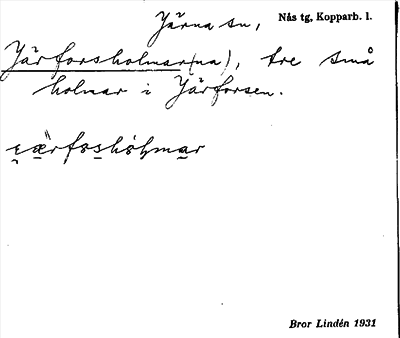 Järna sn, Nås tg, Kopparb. l.
Järforsholmar(na), tre små
holmar i Järforsen.
Bror Lindén 1931